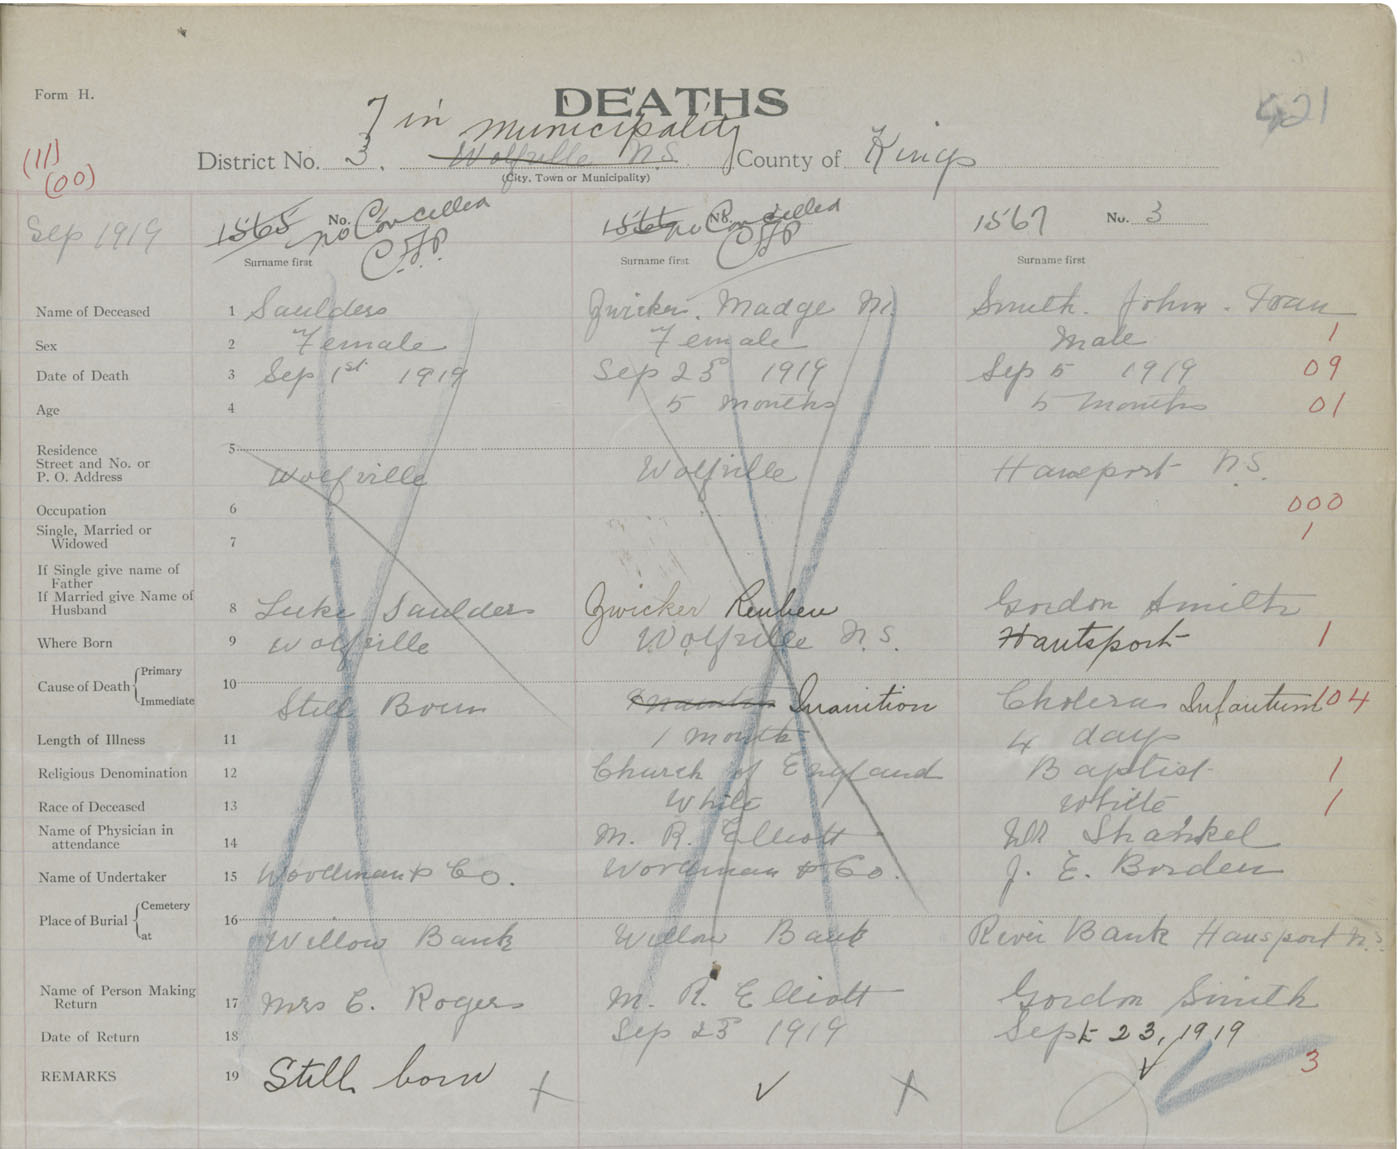 Form H.
DEATHS
421
7 in municipality
(11)
(00)
District No. 3. Wolfville N.S. County of Kings
(City, Town or Municipality)
Sep 1919
1565 No. Cancelled
1566 No. Cancelled
1567 No. 3
Surname first Surname first Surname first
Name of Deceased 1 Saulders Zwicker. Madge M. Smith. John.
Sex 2 Female Female Male 1
Date of Death 3 Sep 1st 1919 Sep 23 1919 Sep 5 1919 09
Age 4 5 months 5 months 01
Residence 5
Street and No. or
P. O. Address Wolfville Wolfville Hansport N.S.
Occupation 6 000
Single, Married or
Widowed 7 1
If Single give name of
Father
If Married give Name of
Husband 8 Luke Saulders Zwicker Reuben Gordon Smith
Where Born 9 Wolfville Wolfville N.S. Hantsport 1
Cause of Death Primary 10
Immediate Still Born Inanition Cholera Infantum 104
Length of Illness 11 1 month 4 days
Religious Denomination 12 Church of England Baptist 1
Race of Deceased 13 White White 1
Name of Physician in
attendance 14 M. R. Elliott Shankel
Name of Undertaker 15 Woodman & Co. Woodman & Co. J. E. Borden
Place of Burial Cemetery 16
at Willow Bank Willow Bank River Bank Hansport N.S.
Name of Person Making
Return 17 Mrs C. Rogers M. R. Elliott Gordon Smith
Date of Return 18 Sep 23 1919 Sept 23, 1919
REMARKS 19 Still born 3